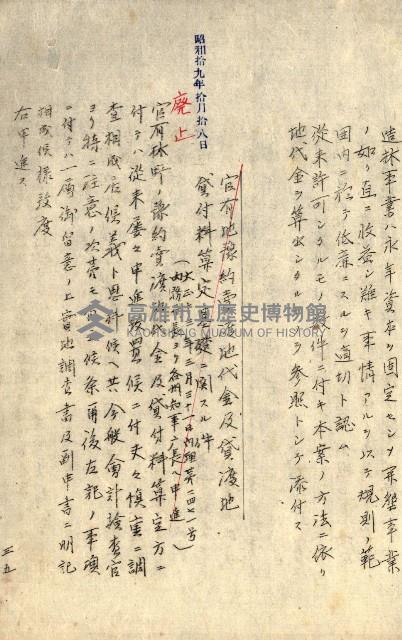 造林事業ハ永年資本ヲ固定セシメ開墾事業
ノ如ク直ニ收益シ難キ事情アルヲ以テ規則ノ範
囲内ニ於テ低廉ニスルヲ適切ト認ム
從来許可シタルモノ 件ニ付キ本案ノ方法ニ依リ
地代金ヲ算出シタル ヲ参照トシテ添付ス
昭和拾九年拾月拾八日
廃止
官有地豫約賣渡地代金及貸渡地
貸付料算定基礎ニ関スル件
年三月三十一日 第二四七一号
ヨリ各州知事庁長ヘ申進
官有林野ノ豫約賣渡地代金及貸付料算定方ニ
付テハ従来屡々申進致置候ニ付夫々慎重ニ調
査相成居候義ト思料候ヘ共今般會計検査官
ヨリ特ニ注意ノ次第モ有之候条爾後左記ノ事項
ニ付テハ一層御留意ノ上實地調査書及副申書ニ明記
相成候様致度
右申進ス
三五
高雄市立歷史博物館
KAOHSIUNG MUSEUM OF HISTORY